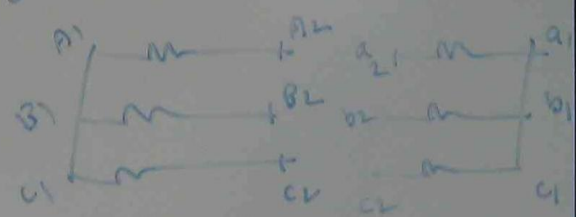 A1 A2 a2 a1
B1 B2 b2 b1
C1 C2 C2 C1